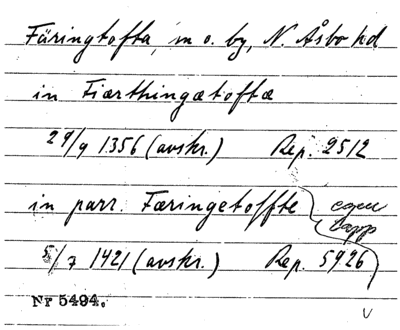 Färingtofta, m o. by, N. Åsbo hd
in Fiærthingætoftæ
29/9 1356 (avskr.) Rep. 2512
in parr. Færingetoffte egen
lapp
5/7 1421 (avskr.) Rep. 5926
Nr 5494.
V